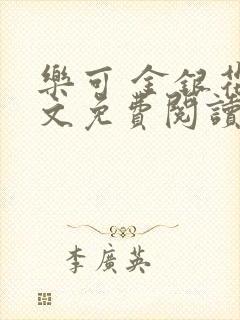 樂可 金銀花
文免費閱讀
李廣英